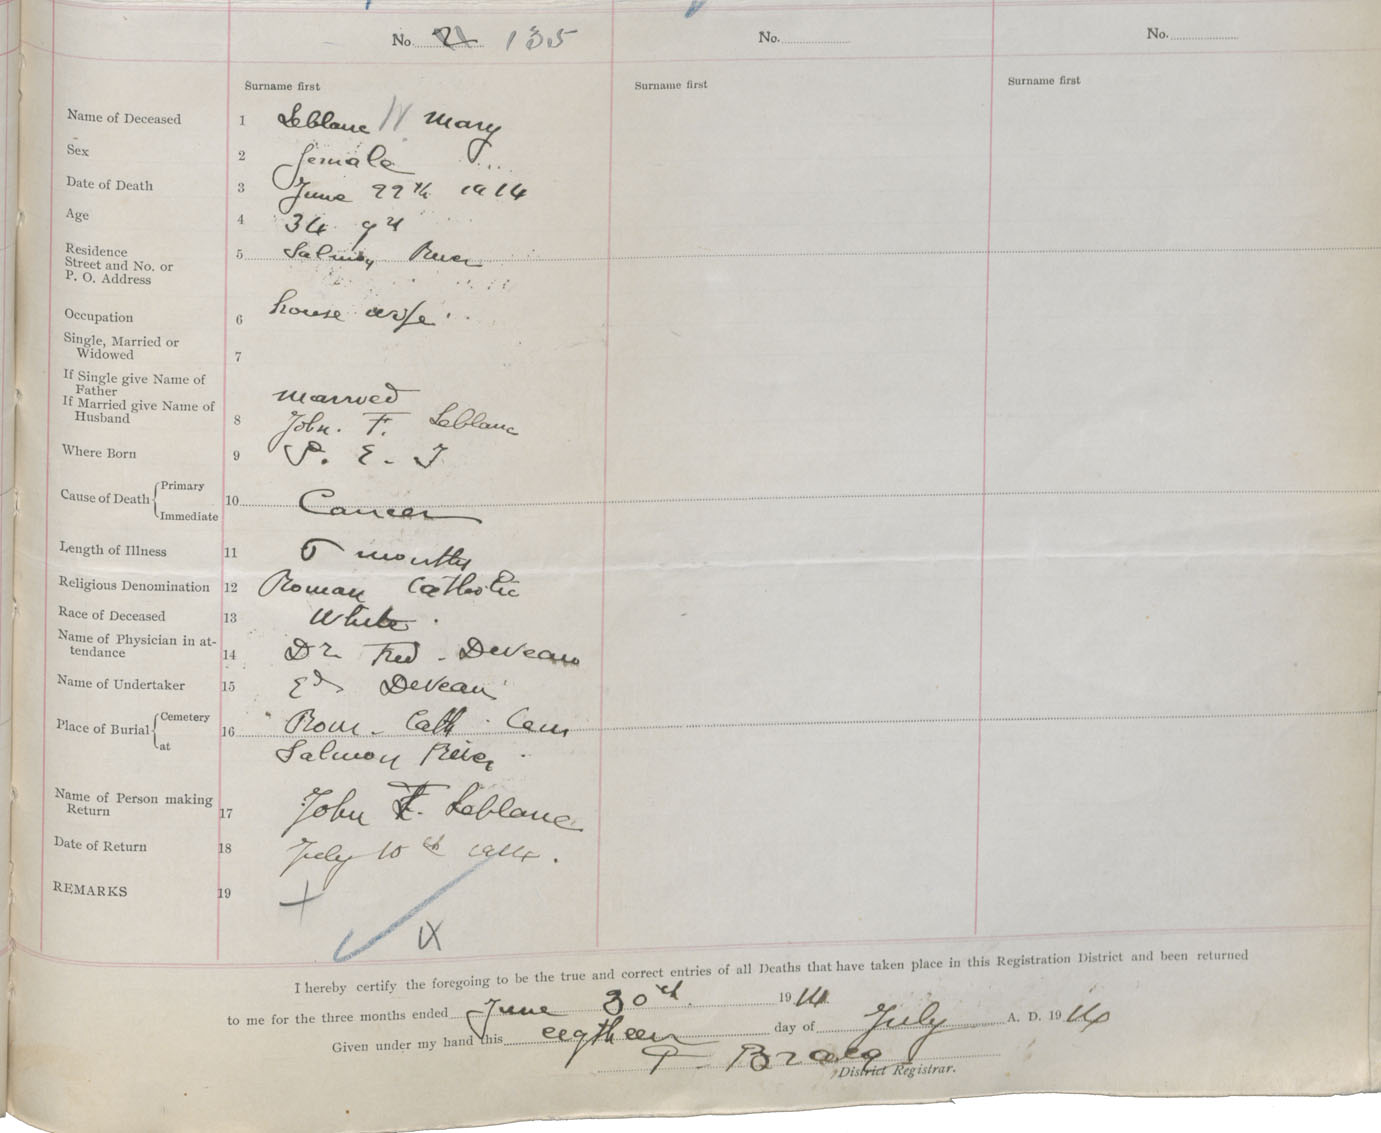 No. 2 135 No. No.
Surname first Surname first Surname first
Name of Deceased 1 Leblanc Mary
Sex 2 female
Date of Death 3 June 22th 1914
Age 4 34 yrs
Residence
Street and No. or 5 Salmon River
P. O. Address
Occupation 6 house wife
Single, Married or
Widowed 7
If Single give Name of
Father married
If Married give Name of
Husband 8 John. F. Leblanc
Where Born 9 P. E. I
Cause of Death Primary
10 Cancer
Immediate
Length of Illness 11 months
Religious Denomination 12 Roman Catholic
Race of Deceased 13 White
Name of Physician in at-
tendance 14 Dr Fred. Deveau
Name of Undertaker 15 Ed Deveau
Place of Burial Cemetery 16 Rom. Cath. Cem
at Salmon River
Name of Person making
Return 17 John F. Leblanc
Date of Return 18 July 10th 1914.
REMARKS 19 +
IX
I hereby certify the foregoing to be the true and correct entries of all Deaths that have taken place in this Registration District and been returned
to me for the three months ended June 30th. 1914
Given under my hand this eigtheen day of July A. D. 1914
District Registrar.